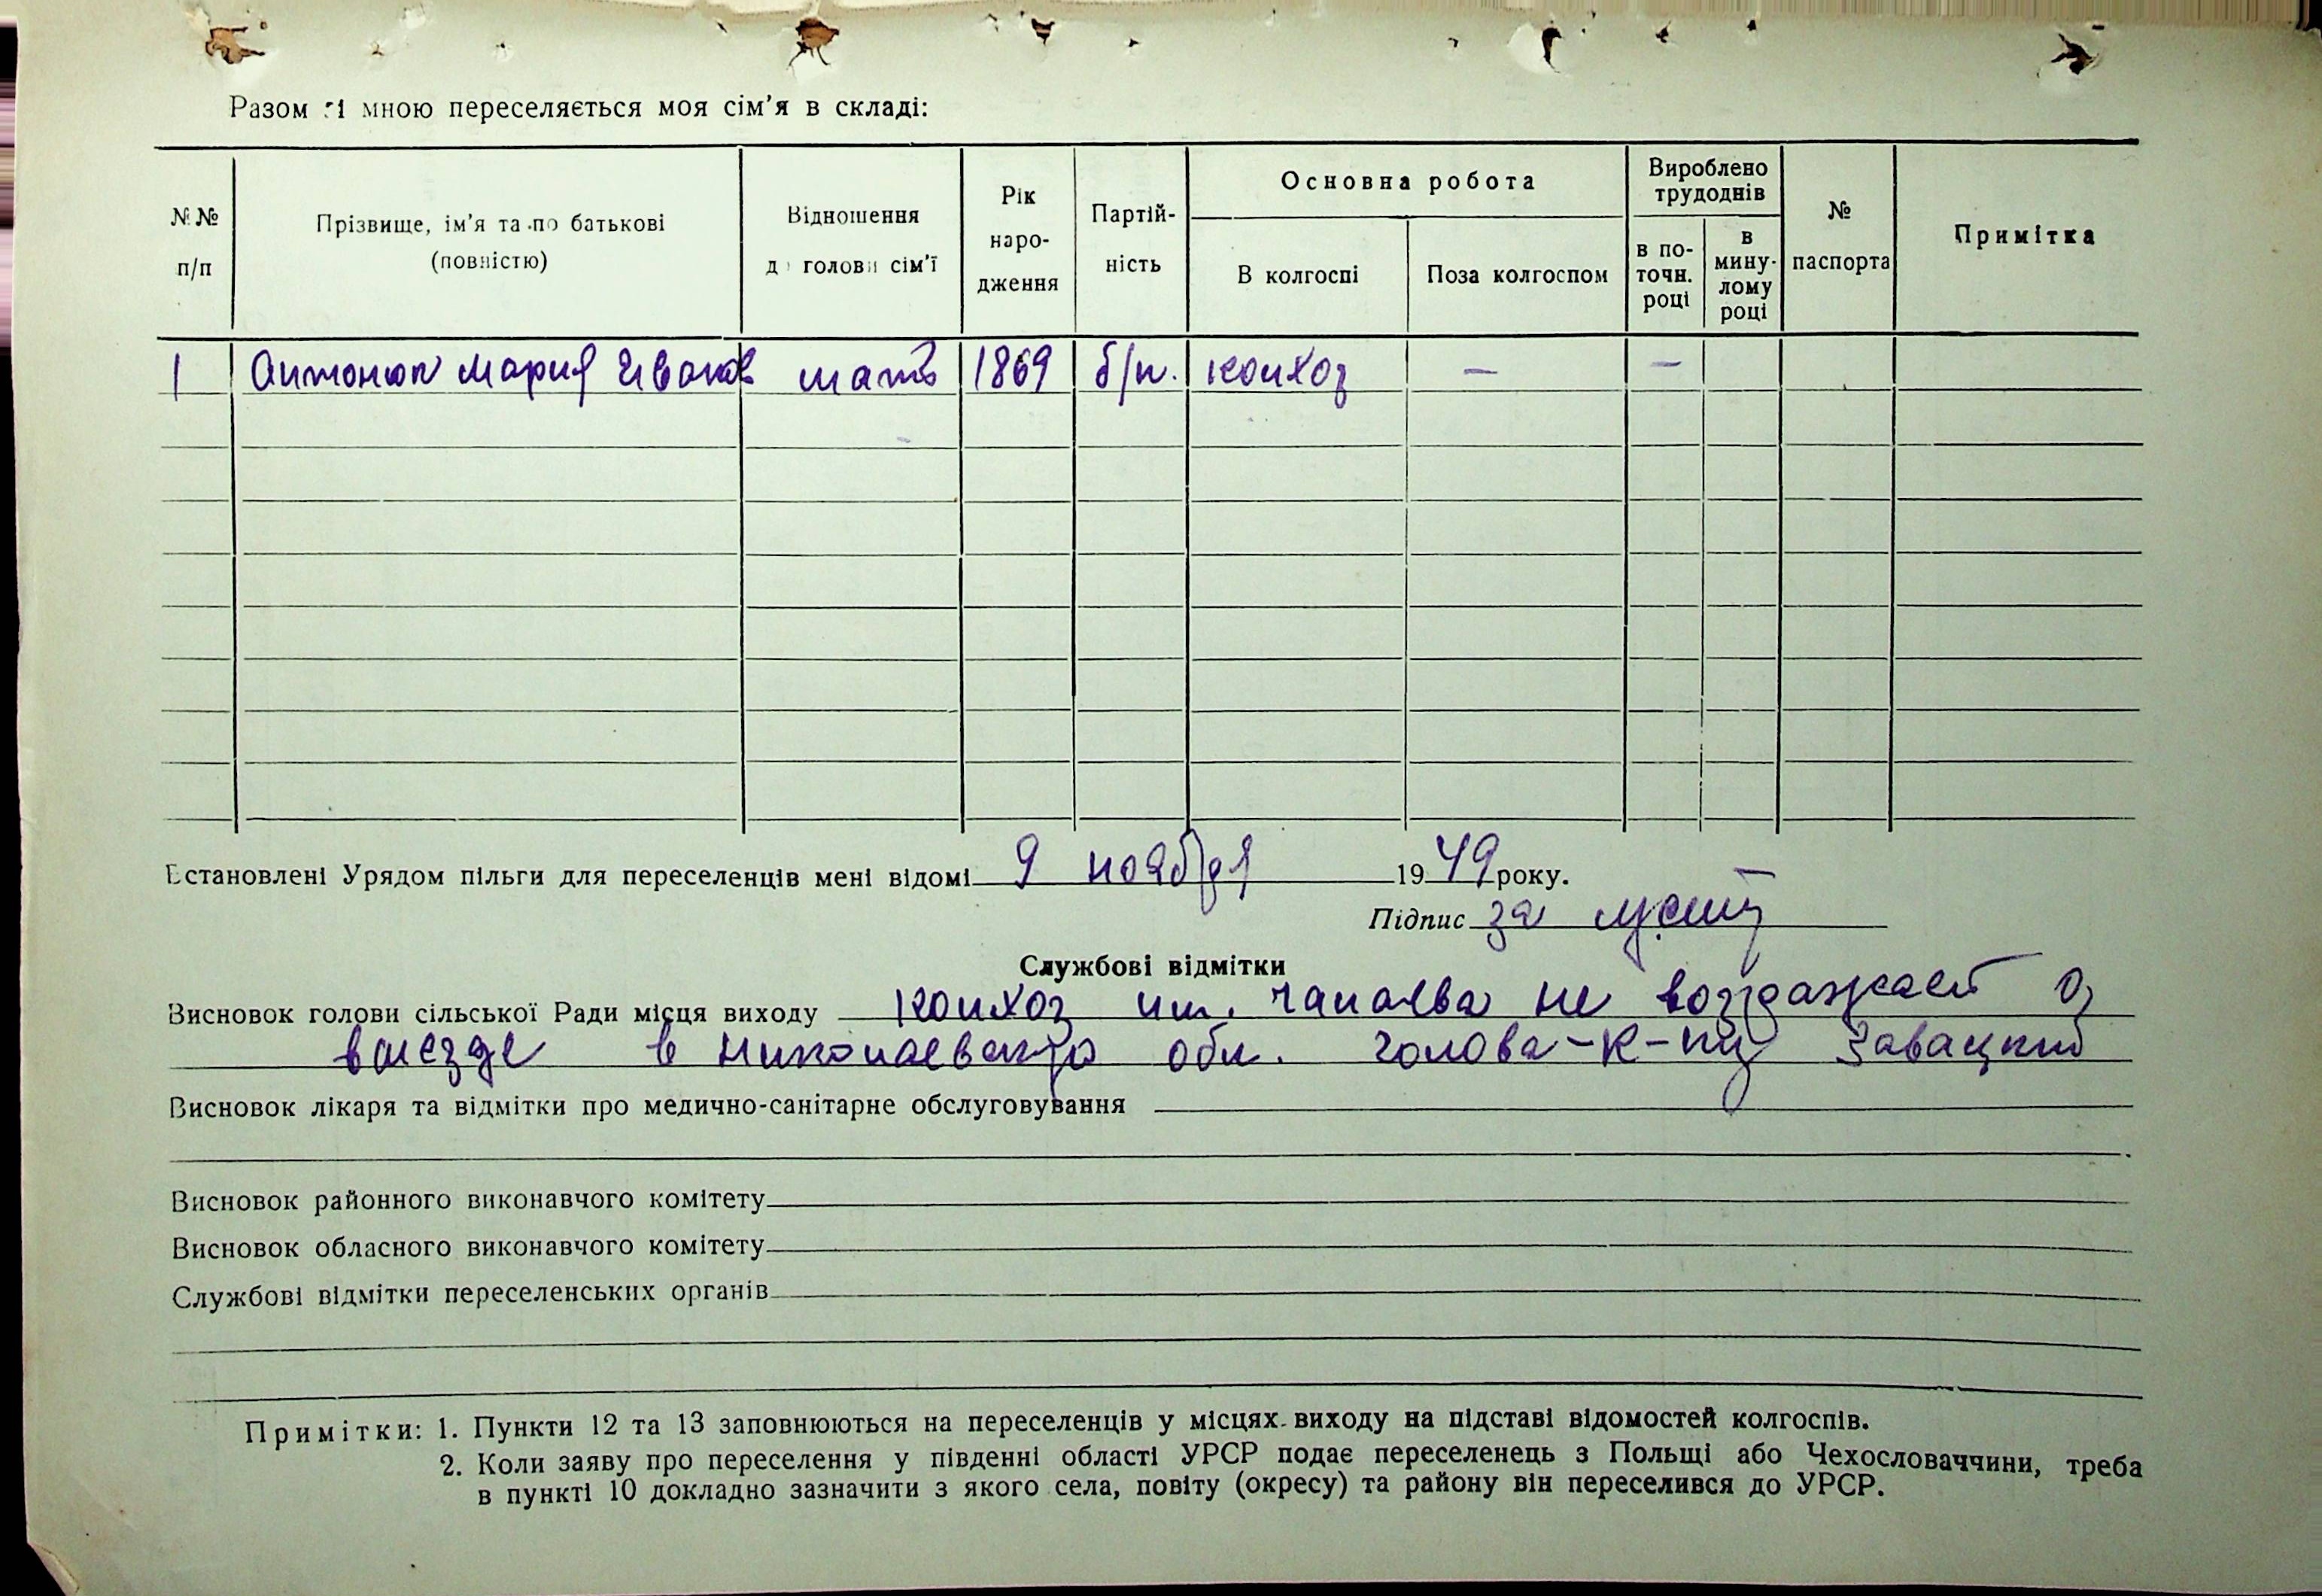 Разом зі мною переселяється моя сім'я в складі:
№№ п/п
Прізвище, ім'я та по батькові (повністю)
Відношення до голови сім'ї
Рік народження
Партійність
Основна робота
В колгоспі
Поза колгоспом
Вироблено трудоднів
в поточн. році
в минулому році
№ паспорта
Примітка
1 Антонюк Мария Иванов мать 1869 б/п. колхоз — —
Встановлені Урядом пільги для переселенців мені відомі 9 ноября 1949 року.
Підпис за
Службові відмітки
Висновок голови сільської Ради місця виходу колхоз им. Чапаева не возражает о
выезде в Николаевскую обл. голова к-пу Завацкий
Висновок лікаря та відмітки про медично-санітарне обслуговування
Висновок районного виконавчого комітету
Висновок обласного виконавчого комітету
Службові відмітки переселенських органів
Примітки: 1. Пункти 12 та 13 заповнюються на переселенців у місцях виходу на підставі відомостей колгоспів.
2. Коли заяву про переселення у південні області УРСР подає переселенець з Польщі або Чехословаччини, треба
в пункті 10 докладно зазначити з якого села, повіту (окресу) та району він переселився до УРСР.